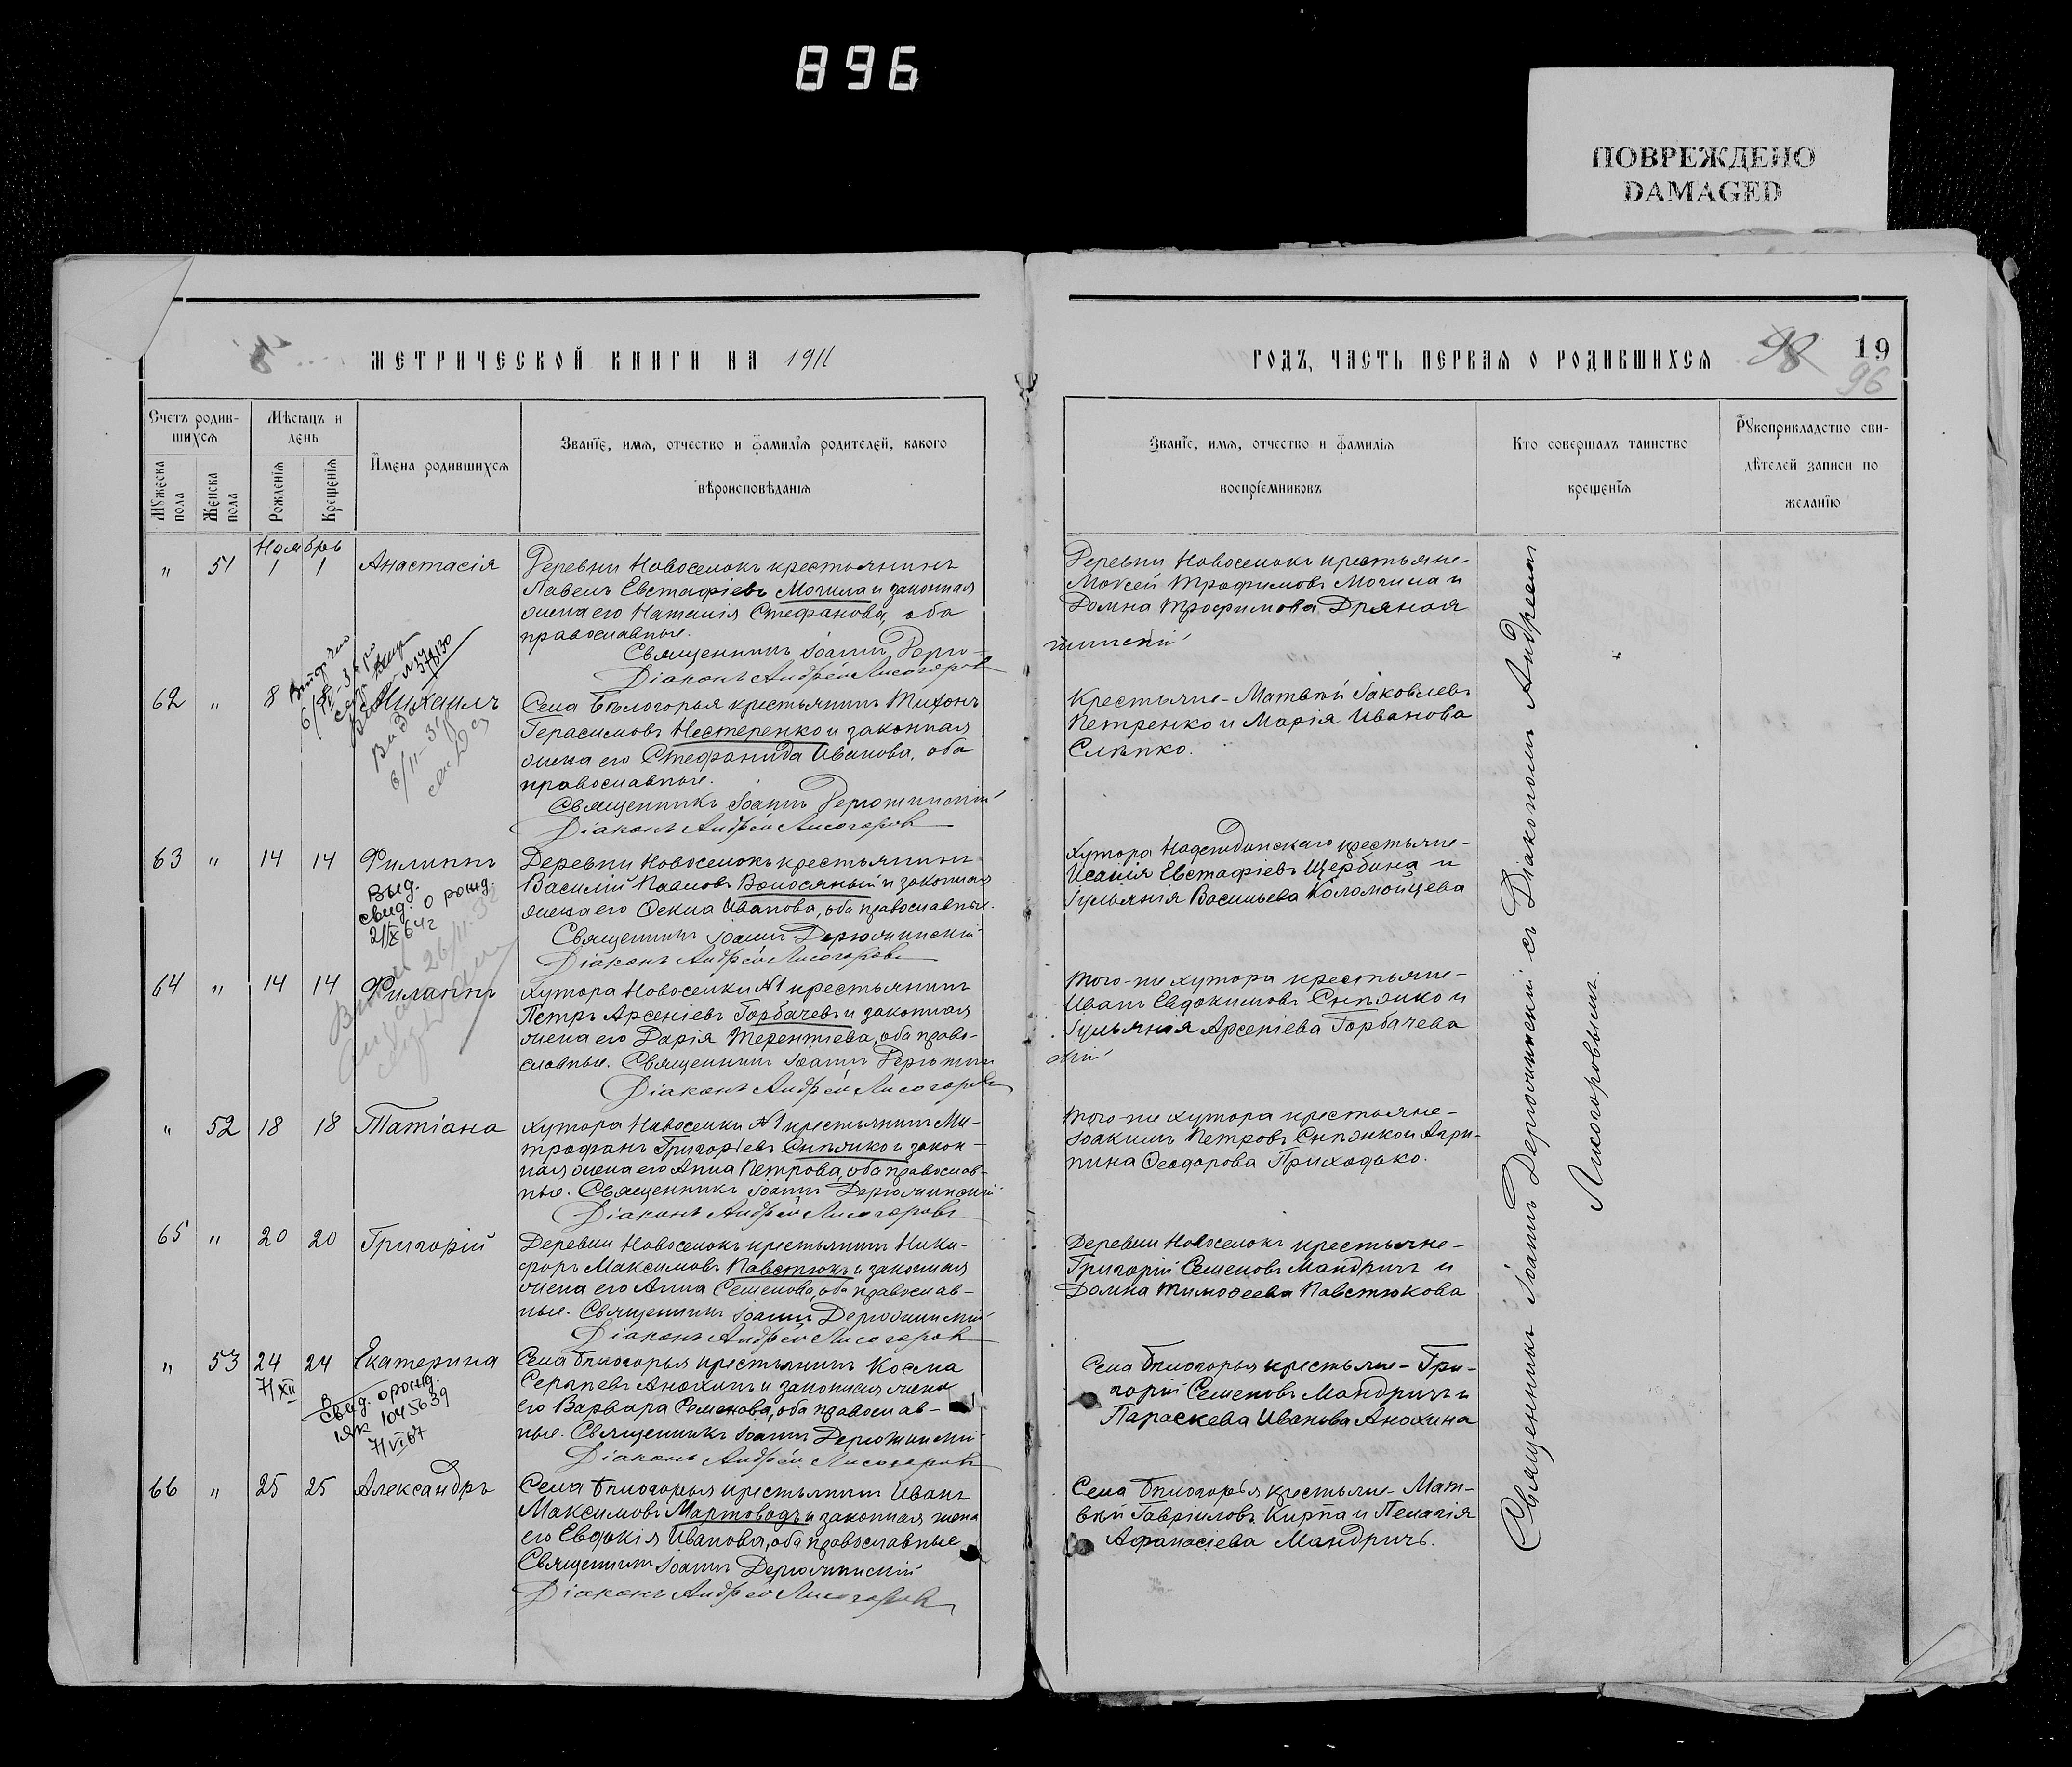 896
ПОВРЕЖДЕНО
DAMAGED
МЕТРИЧЕСКОЙ КНИГИ НА 1911
Счетъ родив-
шихся
Мѣсяцъ и
день
Имена родившихся
Званіе, имя, отчество и фамилія родителей, какого
вѣроисповѣданія
Мужеска
пола
Женска
пола
Рожденія
Крещенія
Ноябрь
" 51 1 1 Анастасія
Деревни Новоселокъ крестьянинъ
Павелъ Евстафіевъ Могила и законная
жена его Наталія Стефанова, оба
православные.
Священникъ Іоаннъ Дерю-
жинскій
Діаконъ Андрей Лисогоровъ
62 " 8 Михаилъ
Села Бѣлогорья крестьянинъ Тихонъ
Герасимовъ Нестеренко и законная
жена его Стефанида Иванова, оба
православные.
Священникъ Іоаннъ Дерюжинскій
Діаконъ Андрей Лисогоровъ
63 " 14 14 Филиппъ
Выд.
свид. о рожд.
21/X 64 г
Деревни Новоселокъ крестьянинъ
Василій Павловъ Волосяный и законная
жена его Ѳекла Иванова, оба православные.
Священникъ Іоаннъ Дерюжинскій
Діаконъ Андрей Лисогоровъ
64 " 14 14 Филиппъ
26/II-52
Хутора Новоселки №1 крестьянинъ
Петръ Арсеніевъ Горбачевъ и законная
жена его Дарія Терентіева, оба право-
славные. Священникъ Іоаннъ Дерюжин
скій
Діаконъ Андрей Лисогоровъ
" 52 18 18 Татіана
Хутора Новоселки №1 крестьянинъ Ми-
трофанъ Григоріевъ Снѣжко и закон-
ная жена его Анна Петрова, оба православ-
ные. Священникъ Іоаннъ Дерюжинскій
Діаконъ Андрей Лисогоровъ
65 " 20 20 Григорій
Деревни Новоселокъ крестьянинъ Ники-
форъ Максимовъ Павстюкъ и законная
жена его Анна Семенова, оба православ-
ные. Священникъ Іоаннъ Дерюжинскій
Діаконъ Андрей Лисогоровъ
" 53 24 24 Екатерина
7/XII
свид. о рожд.
1045639
7/VI 67
Села Бѣлогорья крестьянинъ Косма
Сергіевъ Анохинъ и законная жена
его Варвара Семенова, оба православ-
ные. Священникъ Іоаннъ Дерюжинскій
Діаконъ Андрей Лисогоровъ
66 " 25 25 Александръ
Села Бѣлогорья крестьянинъ Иванъ
Максимовъ Мартоводъ и законная жена
его Евдокія Иванова, оба православные
Священникъ Іоаннъ Дерюжинскій
Діаконъ Андрей Лисогоровъ
ГОДЪ, ЧАСТЬ ПЕРВАЯ О РОДИВШИХСЯ
98
19
96
Званіе, имя, отчество и фамилія
воспріемниковъ
Кто совершалъ таинство
крещенія
Рукоприкладство сви-
дѣтелей записи по
желанію
Деревни Новоселокъ крестьяне-
Моѵсей Трофимовъ Могила и
Домна Трофимова Дряная
Крестьяне - Матвѣй Іаковлевъ
Петренко и Марія Иванова
Слѣпко.
Хутора Надеждинскаго крестьяне-
Исаія Евстафіевъ Щербина и
Іуліанія Васильева Коломойцева
Того-же хутора крестьяне-
Иванъ Евдокимовъ Снѣжко и
Іуліанія Арсеніева Горбачева
Того-же хутора крестьяне-
Іоакимъ Петровъ Снѣжко и Агри-
пина Ѳеодорова Приходько.
Деревни Новоселокъ крестьяне-
Григорій Семеновъ Мандричъ и
Домна Тимоѳеева Павстюкова
Села Бѣлогорья крестьяне - Гри-
горій Семеновъ Мандричъ и
Параскева Иванова Анохина
Села Бѣлогорья крестьяне - Мат-
вѣй Гавріиловъ Кирпа и Пелагія
Афанасіева Мандричъ.
Священникъ Іоаннъ Дерюжинскій съ Діакономъ Андреемъ
Лисогоровымъ.